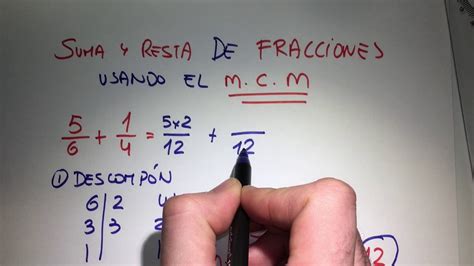 SUMA Y RESTA DE FRACCIONES
USANDO EL M.C.M
5/6 + 1/4 = 5x2/12 + /12
① DESCOMPÓN
6 | 2 4
3 | 3 2
1 | 12